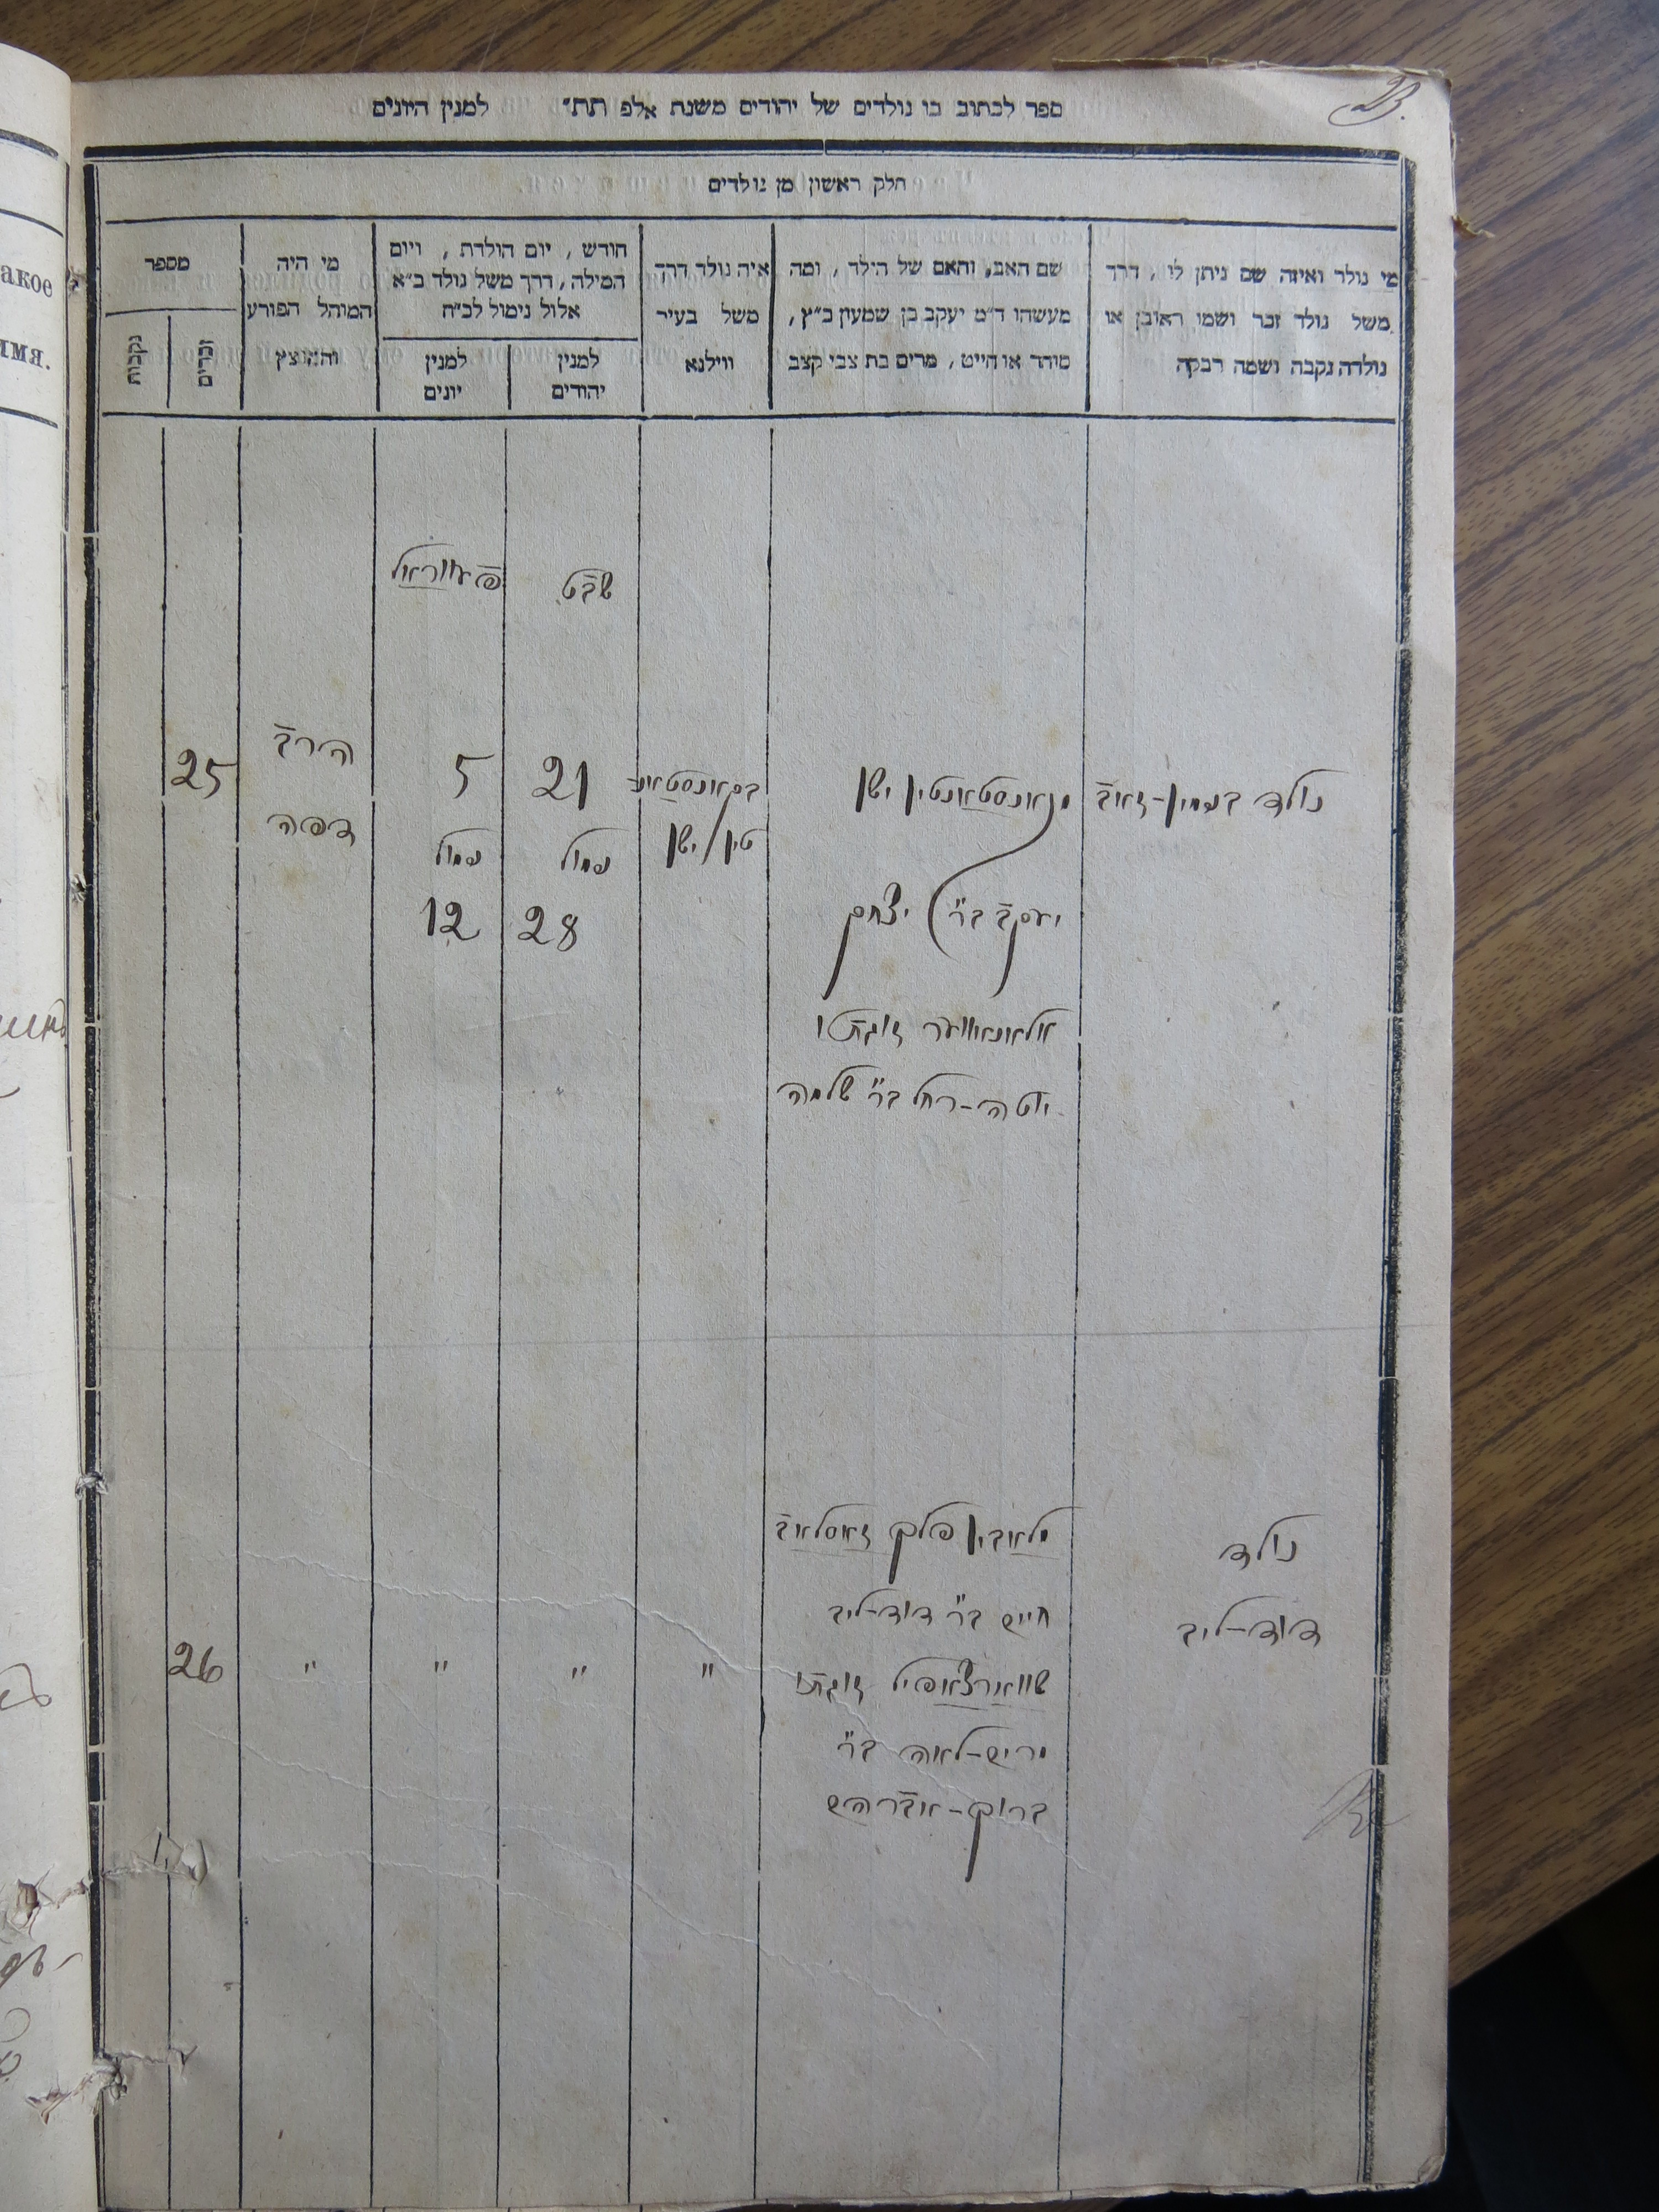 ספר לכתוב בו נולדים של יהודים משנת אלפ תת״ למנין היונים
חלק ראשון מן נולדים
מי נולר ואיזה שם ניתן לו, דרך
משל נולד זכר ושמו ראובן או
נולדה נקבה ושמה רבקה
שם האב, והאם של הילד, ומה
מעשהו ד״מ יעקב בן שמעון כ״ץ,
סוחר או הייט, מרים בת צבי קצב
איה נולד דרך
משל בעיר
ווילנא
חודש, יום הולדת, ויום
המילה, דרך משל נולד ב״א
אלול נימול לכ״ח
למנין
יהודים
למנין
יונים
מי היה
המוהל הפורע
והמוצץ
מספר
זכרים
נקבות
שבט
פעווראל
נולד בנימין-זאב
קאנסטאנטין ישן
יעקב בר׳ יצחק
זוגתו
יוטה-רחל בר׳ שלמה
בקאנסטאנ
טין ישן
21
נמול
28
5
נמול
12
הרב
דפה
25
נולד
דוד-ליב
חיים בר׳ דוד-ליב
שווארצאפיל זוגתו
מרים-לאה בר׳
ברוך-אברהם
"
"
"
"
26
акое
имя.